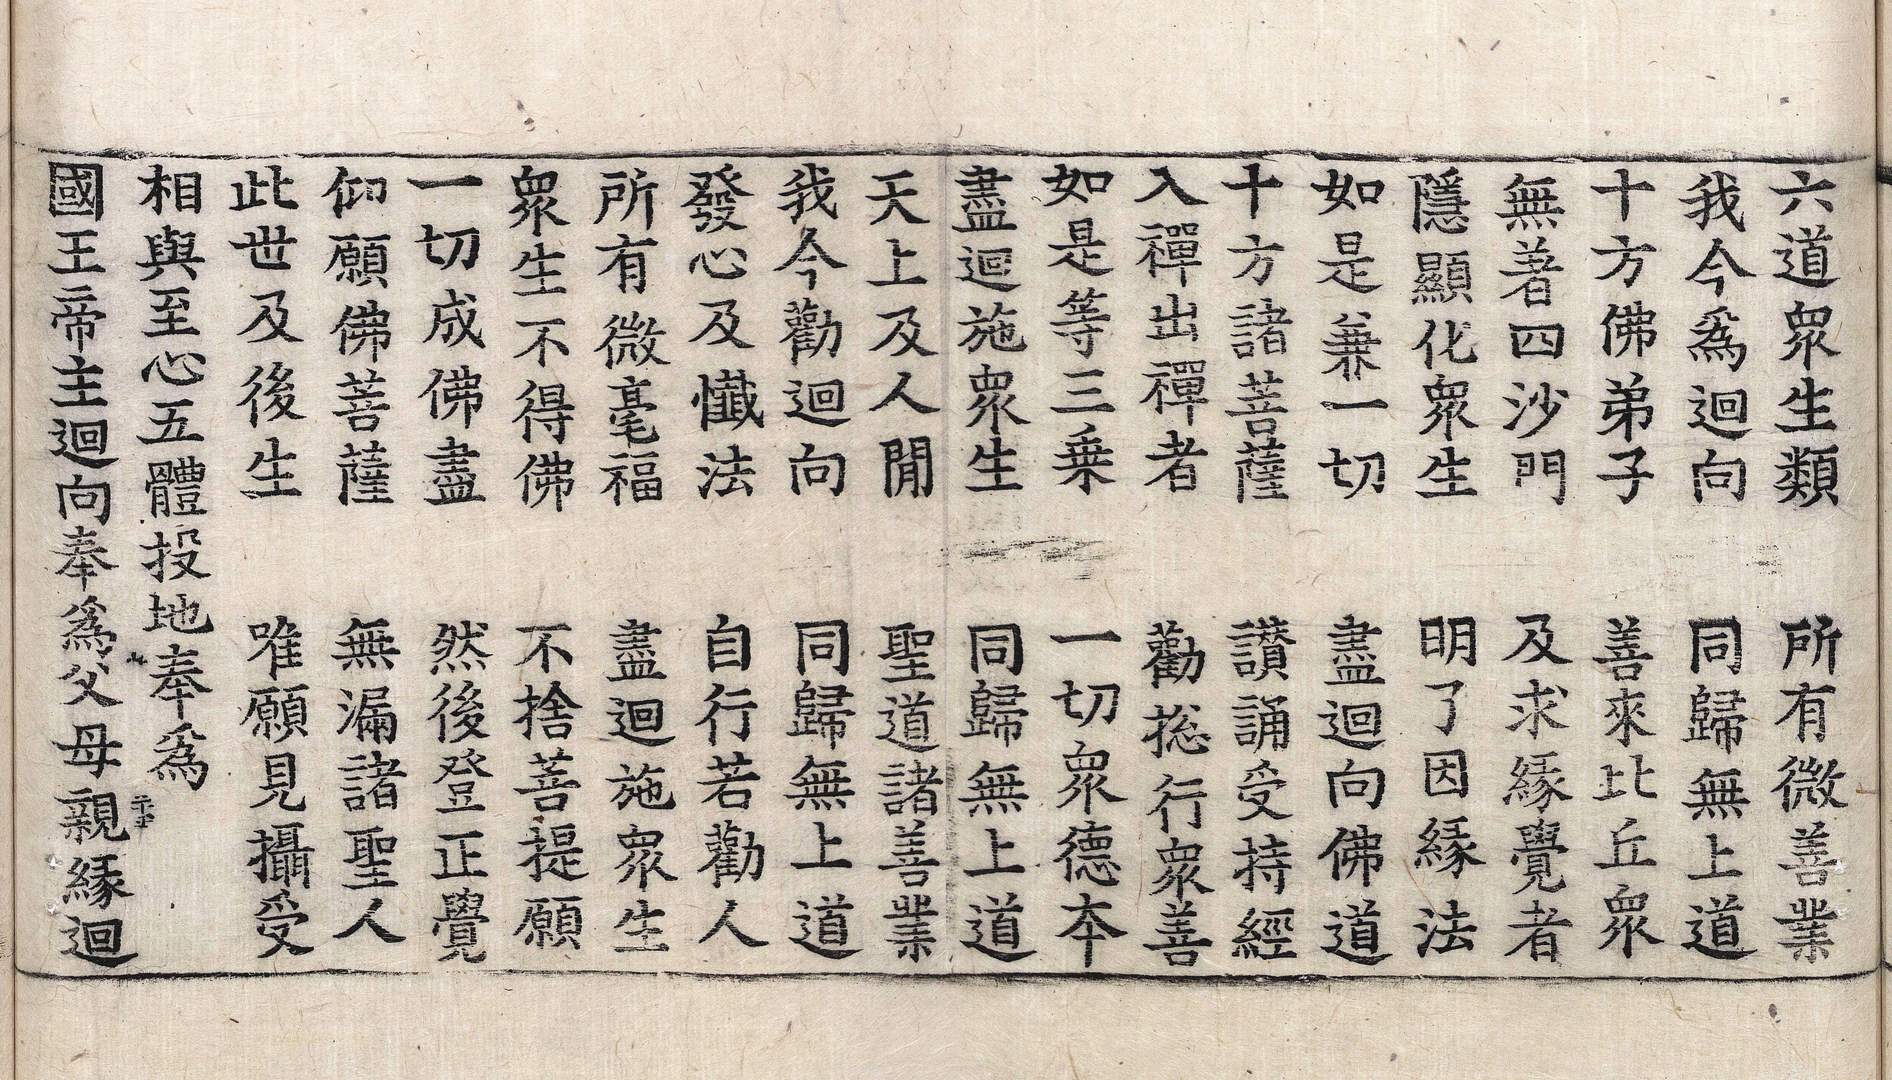 六道衆生類　所有微善業
我今爲迴向　同歸無上道
十方佛弟子　善來比丘衆
無著四沙門　及求緣覺者
隱顯化衆生　明了因緣法
如是兼一切　盡迴向佛道
十方諸菩薩　讃誦受持經
入禪出禪者　勸捴行衆善
如是等三乗　一切衆德夲
盡迴施衆生　同歸無上道
天上及人閒　聖道諸善業
我今勸迴向　同歸無上道
發心及懺法　自行若勸人
所有微毫福　盡迴施衆生
衆生不得佛　不捨菩提願
一切成佛盡　然後登正覺
仰願佛菩薩　無漏諸聖人
此世及後生　唯願見攝受
相與至心五體投地奉爲
國王帝主迴向奉爲父母親緣迴